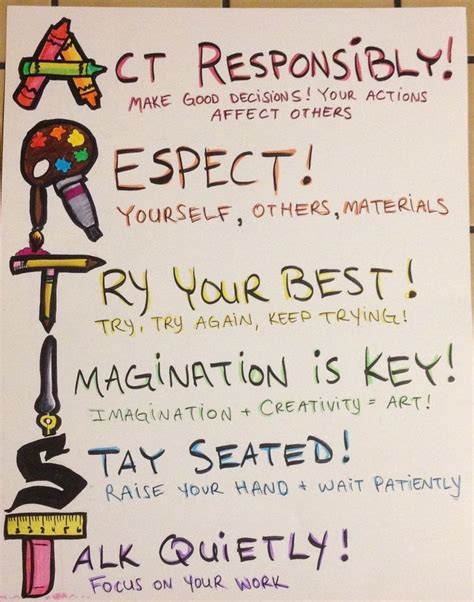 ACT RESPONSiBLY!
MAKE GOOD DECISIONS! YOUR ACTIONS
AFFECT OTHERS
RESPECT!
YOURSELF, OTHERS, MATERIALS
TRY YOUR BEST!
TRY, TRY AGAIN, KEEP TRYING!
IMAGiNATION iS KEY!
IMAGiNATION + CREATiViTY = ART!
STAY SEATED!
RAISE YOUR HAND + WAIT PATIENTLY
TALK QUIETLY!
FOCUS ON YOUR WORK